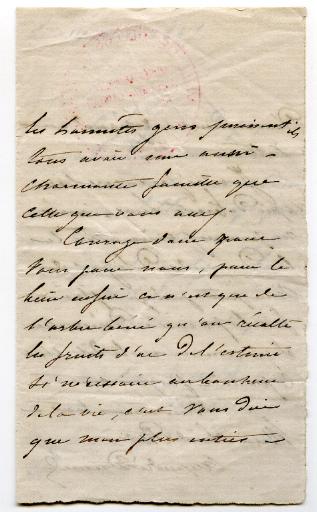 les honnêtes gens puissent ils
tous avoir une aussi
charmante famille que
celle que vous avez
Courage donc pour
vous pour nous, pour le
bien enfin ce n'est que de
l'arbre béni qu'on récolte
les fruits d'or de l'estime
si nécessaire au bonheur
de la vie, c'est vous dire
que mon plus entier